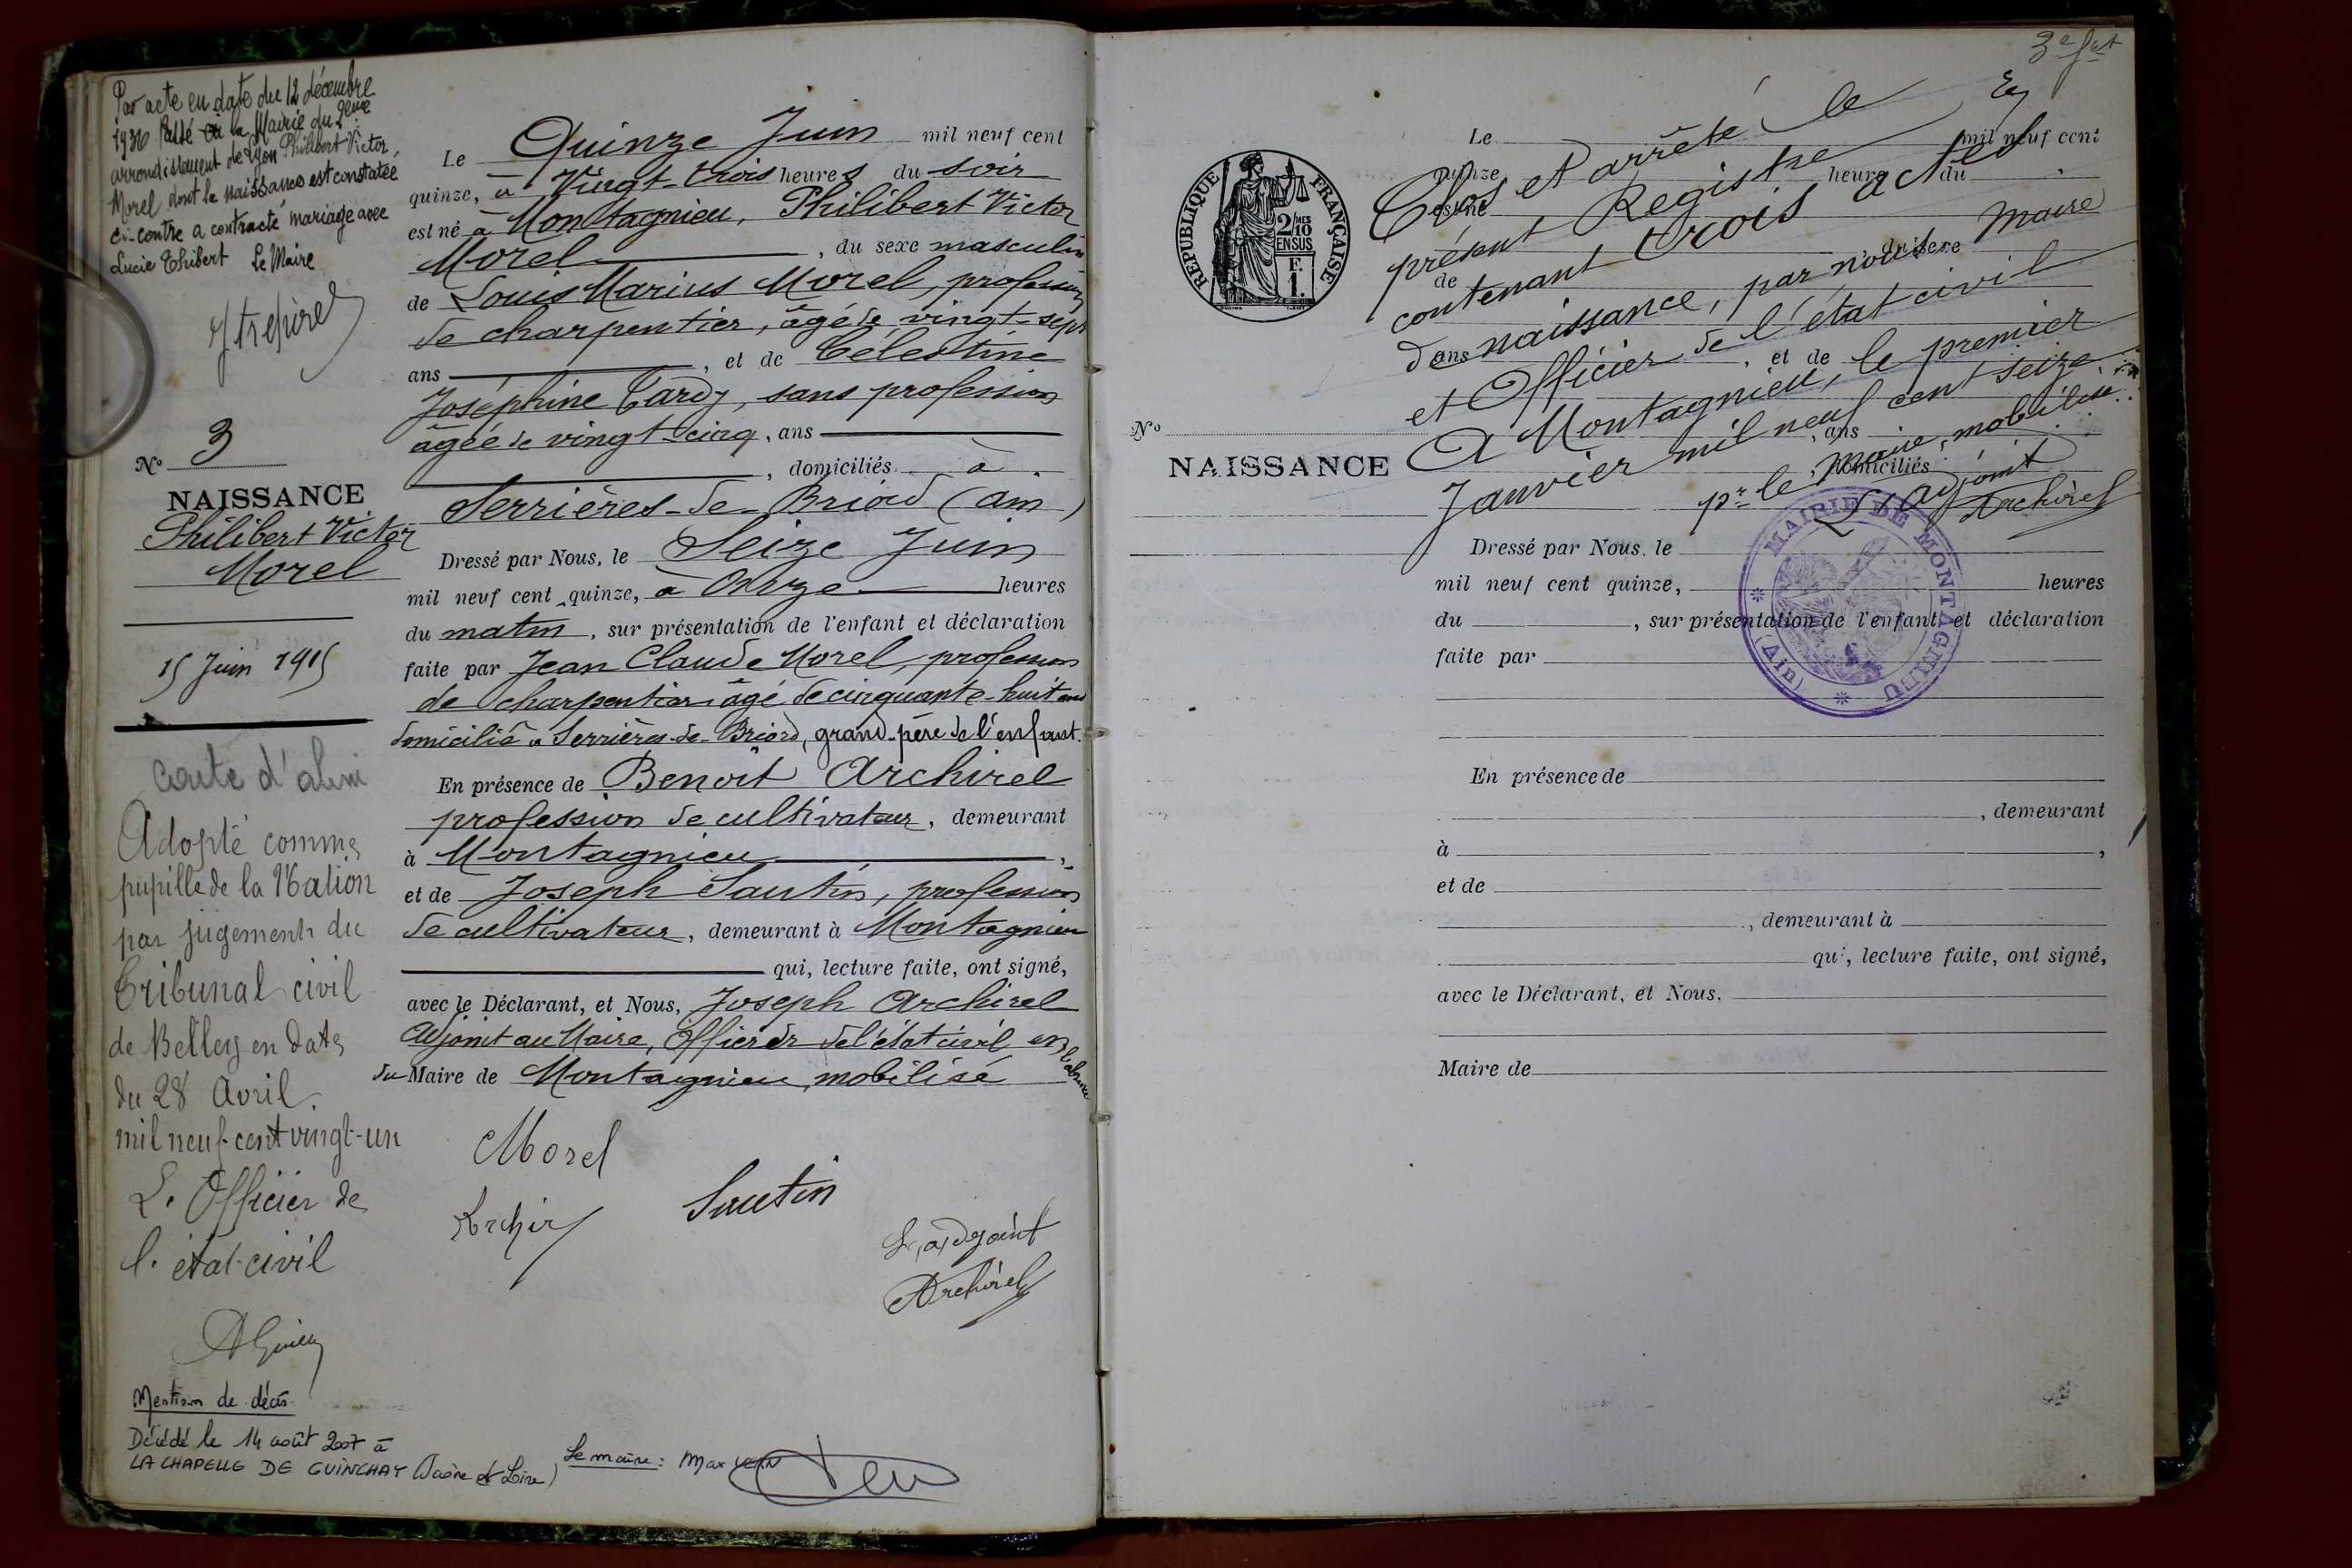 Par acte en date du 12 décembre
1936 passé à la Mairie du 2ème
arrondissement de Lyon Philibert Victor,
Morel dont la naissance est constatée
ci-contre a contracté mariage avec
Lucie Thibert Le Maire
N° 3
NAISSANCE
Philibert Victor
Morel
15 Juin 1915
Adopté comme
pupille de la Nation
par jugement du
Tribunal civil
de Belley en date
du 28 Avril
mil neuf-cent vingt-un
L'Officier de
l'état-civil
Mention de décès
Décédé le 14 août 2007 à
LA CHAPELLE DE GUINCHAY (Saône et Loire)
Le maire : Max
Le Quinze Juin mil neuf cent
quinze, à Vingt-trois heures du soir
est né à Montagnieu, Philibert Victor
Morel, du sexe masculin
de Louis Marius Morel, profession
de charpentier, âgé de vingt-sept
ans, et de Célestine
Joséphine Tardy, sans profession
âgée de vingt-cinq, ans
, domiciliés à
Serrières-de-Briord (Ain)
Dressé par Nous, le Seize Juin
mil neuf cent quinze, à Onze heures
du matin, sur présentation de l'enfant et déclaration
faite par Jean Claude Morel, profession
de charpentier âgé de cinquante-huit ans
domicilié à Serrières-de-Briord, grand-père de l'enfant.
En présence de Benoît Archirel
profession de cultivateur, demeurant
à Montagnieu,
et de Joseph Sautin, profession
de cultivateur, demeurant à Montagnieu
qui, lecture faite, ont signé,
avec le Déclarant, et Nous, Joseph Archirel
Adjoint au Maire, Officier de l'état civil en l'absence
du Maire de Montagnieu, mobilisé
Morel
Sautin
L'adjoint
Archirel
3e
REPUBLIQUE FRANÇAISE
2/10
EN SUS
F.
1.
Le mil neuf cent
quinze heure du
est né
du sexe
de
ans, et de
, ans
, domiciliés
Clos et arrêté le
présent Registre
contenant trois actes
de naissance, par nous Maire
et Officier de l'état civil
A Montagnieu, le premier
Janvier mil neuf cent seize
pr le Maire, mobilisé
L'Adjoint
Archirel
N°
NAISSANCE
MAIRIE DE MONTAGNIEU
(Ain)
Dressé par Nous, le
mil neuf cent quinze, heures
du , sur présentation de l'enfant et déclaration
faite par
En présence de
, demeurant
à ,
et de
, demeurant à
qui, lecture faite, ont signé,
avec le Déclarant, et Nous,
Maire de